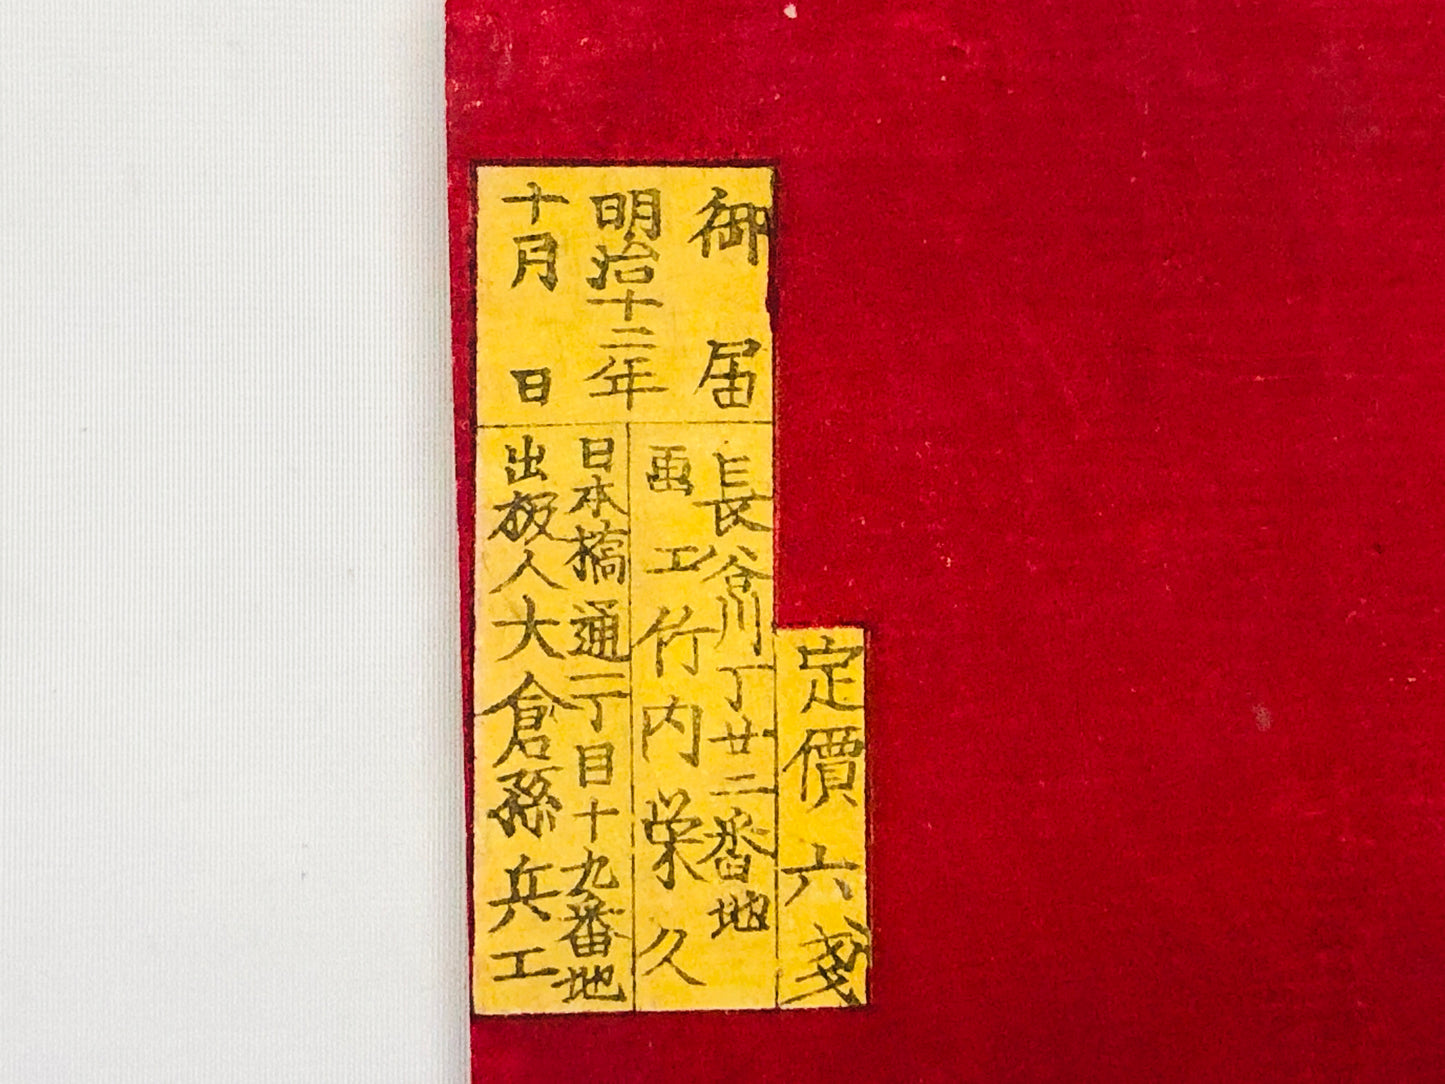 御届
明治十二年
十月 日
定價六戔
長谷川丁廿二番地
画工竹内栄久
日本橋通一丁目十九番地
出板人大倉孫兵エ